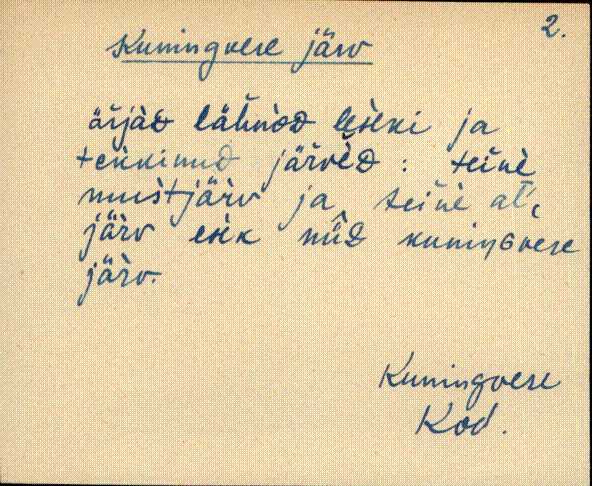 2.
Kuningvere järv
ärjäd lähnod lešeki ja
tekkinud järvèd : teine
mustjärv ja teine al'
järv ešk nüd kuningvere
järv.
Kuningvere
Kod.